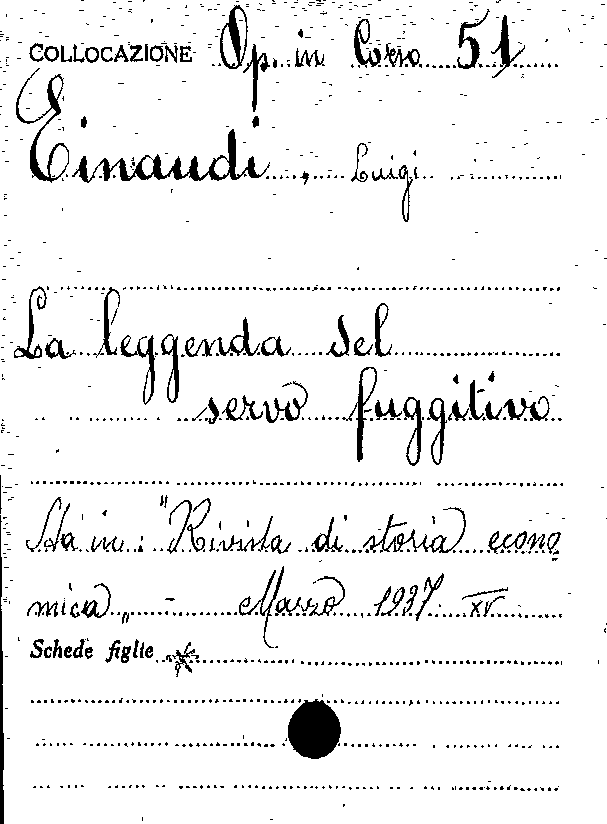 COLLOCAZIONE Op. in Corso 51
Einaudi, Luigi
La leggenda del
servo fuggitivo
Sta in: "Rivista di storia econo
mica„ - Marzo 1937 XV
Schede figlie *